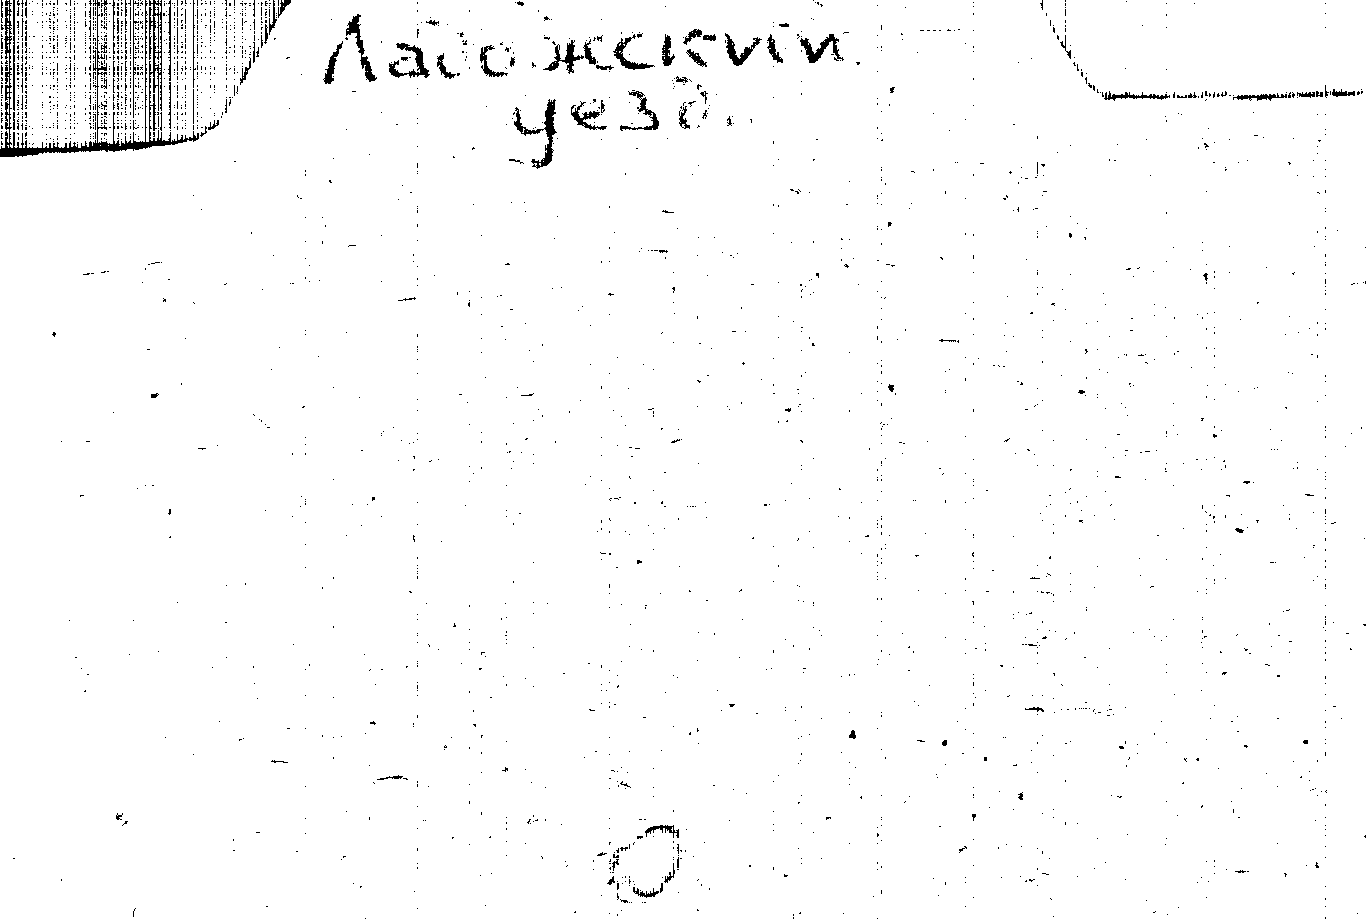 Ладожский
уезд.